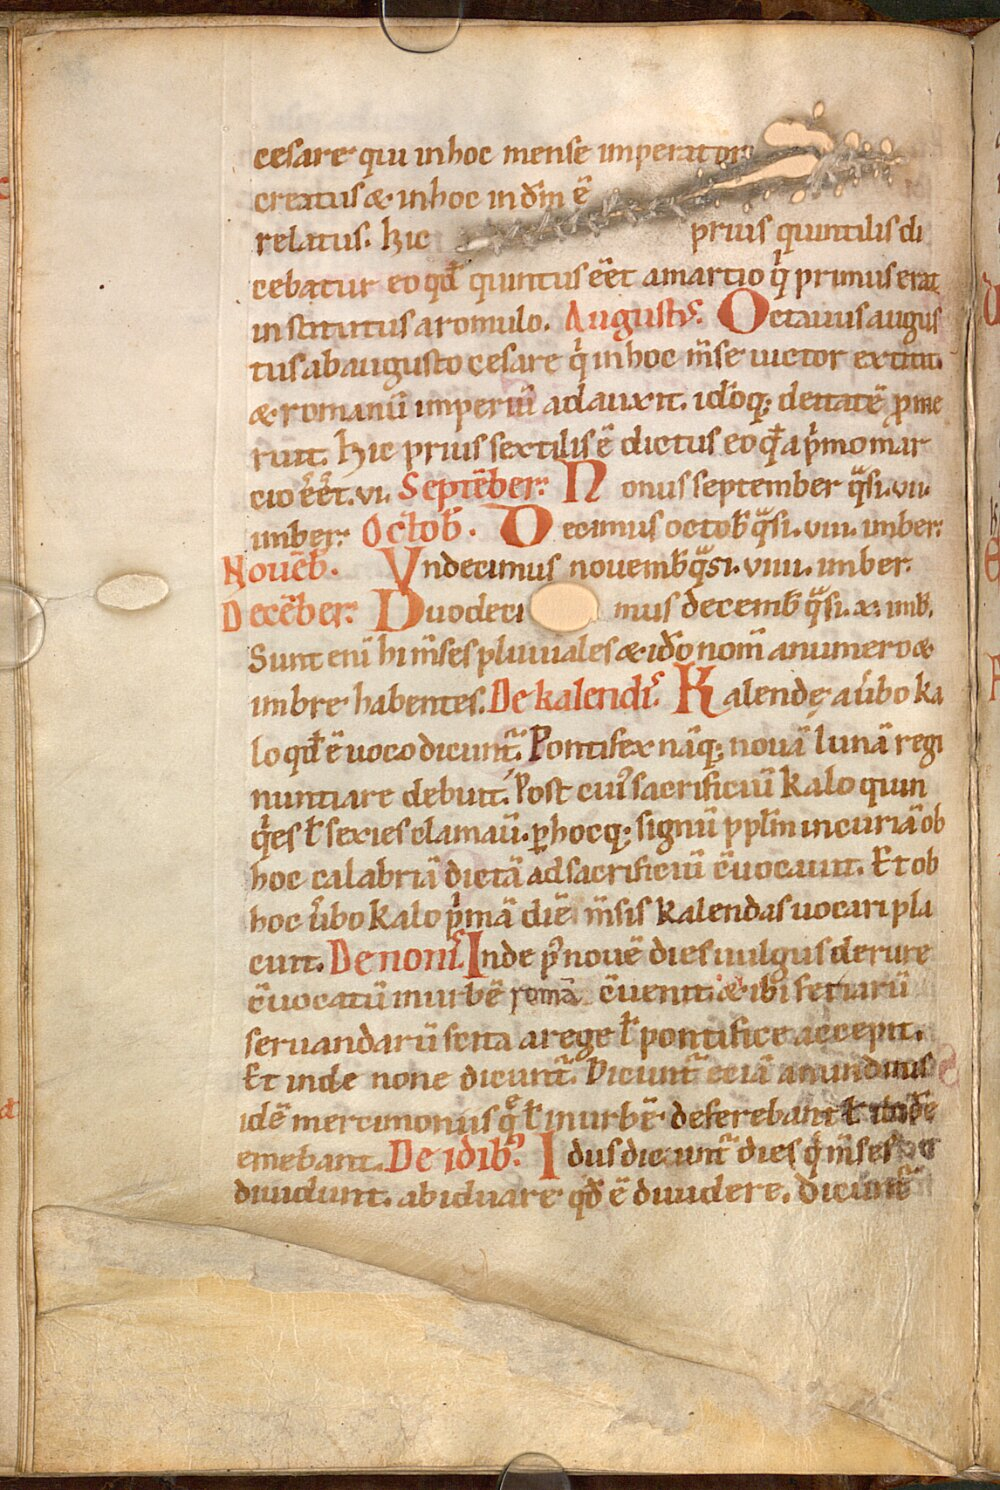 cesare qui inhoc mense imperator
creatus & inhoc in dm̄ ē
relatus. Hic prius quintilis di
cebatur eo qđ quintus eēt amartio q̇ primus erat
institutus aromulo. Augustꝰ. Octauus augus
tus abaugusto cesare q̇ inhoc m̄se uictor extitit
& romanū imperiū adauxit. idoq; deitatē ꝓme
ruit. Hic prius sextilis ē dictus eo qđ apͥmo mar
cio eēt. vi. Septēber. Nonus september qͣsi. vii.
imber. Octob̄. Decimus octob̄ qͣsi. viii. imber.
Nouēb̄. Vndecimus nouemb̄ qͣsi. viiii. imber.
Decēber. Duodecimus decemb̄ qͣsi. x. imb̄.
Sunt enī hi m̄ses pluuiales & iđo nom̄ anumero &
imbre habentes. De kalendiſ. Kalendę aūbo ka
lo qđ ē uoco dicunt᷑. Pontifex nāq; nouā lunā regi
nuntiare debuit. Post cuiꝰ sacrificiū kalo quin
qͥes ł sexies clamaū. ꝑ hocq; signū ppl̄m incuriā ob
hoc calabriā dictā adsacrificiū c̄uocauit. Et ob
hoc ūbo kalo pͥmā diē m̄sis kalendas uocari pla
cuit. De noniſ. Inde pꝰ nouē dies uulgus derure
c̄uocatū inurbē romā c̄uenit. & ibi feriarū
seruandarū scita arege ł pontifice accepit.
Et inde none dicunt᷑. Dicunt᷑ eciā anundinis
idē mercimoniis qͤ ł inurbē deferebant ł
emebant. De idib᷒. Idus dicunt᷑ dies qͥ m̄ses
diuidunt. abiduare qđ ē diuidere. dicunt᷑